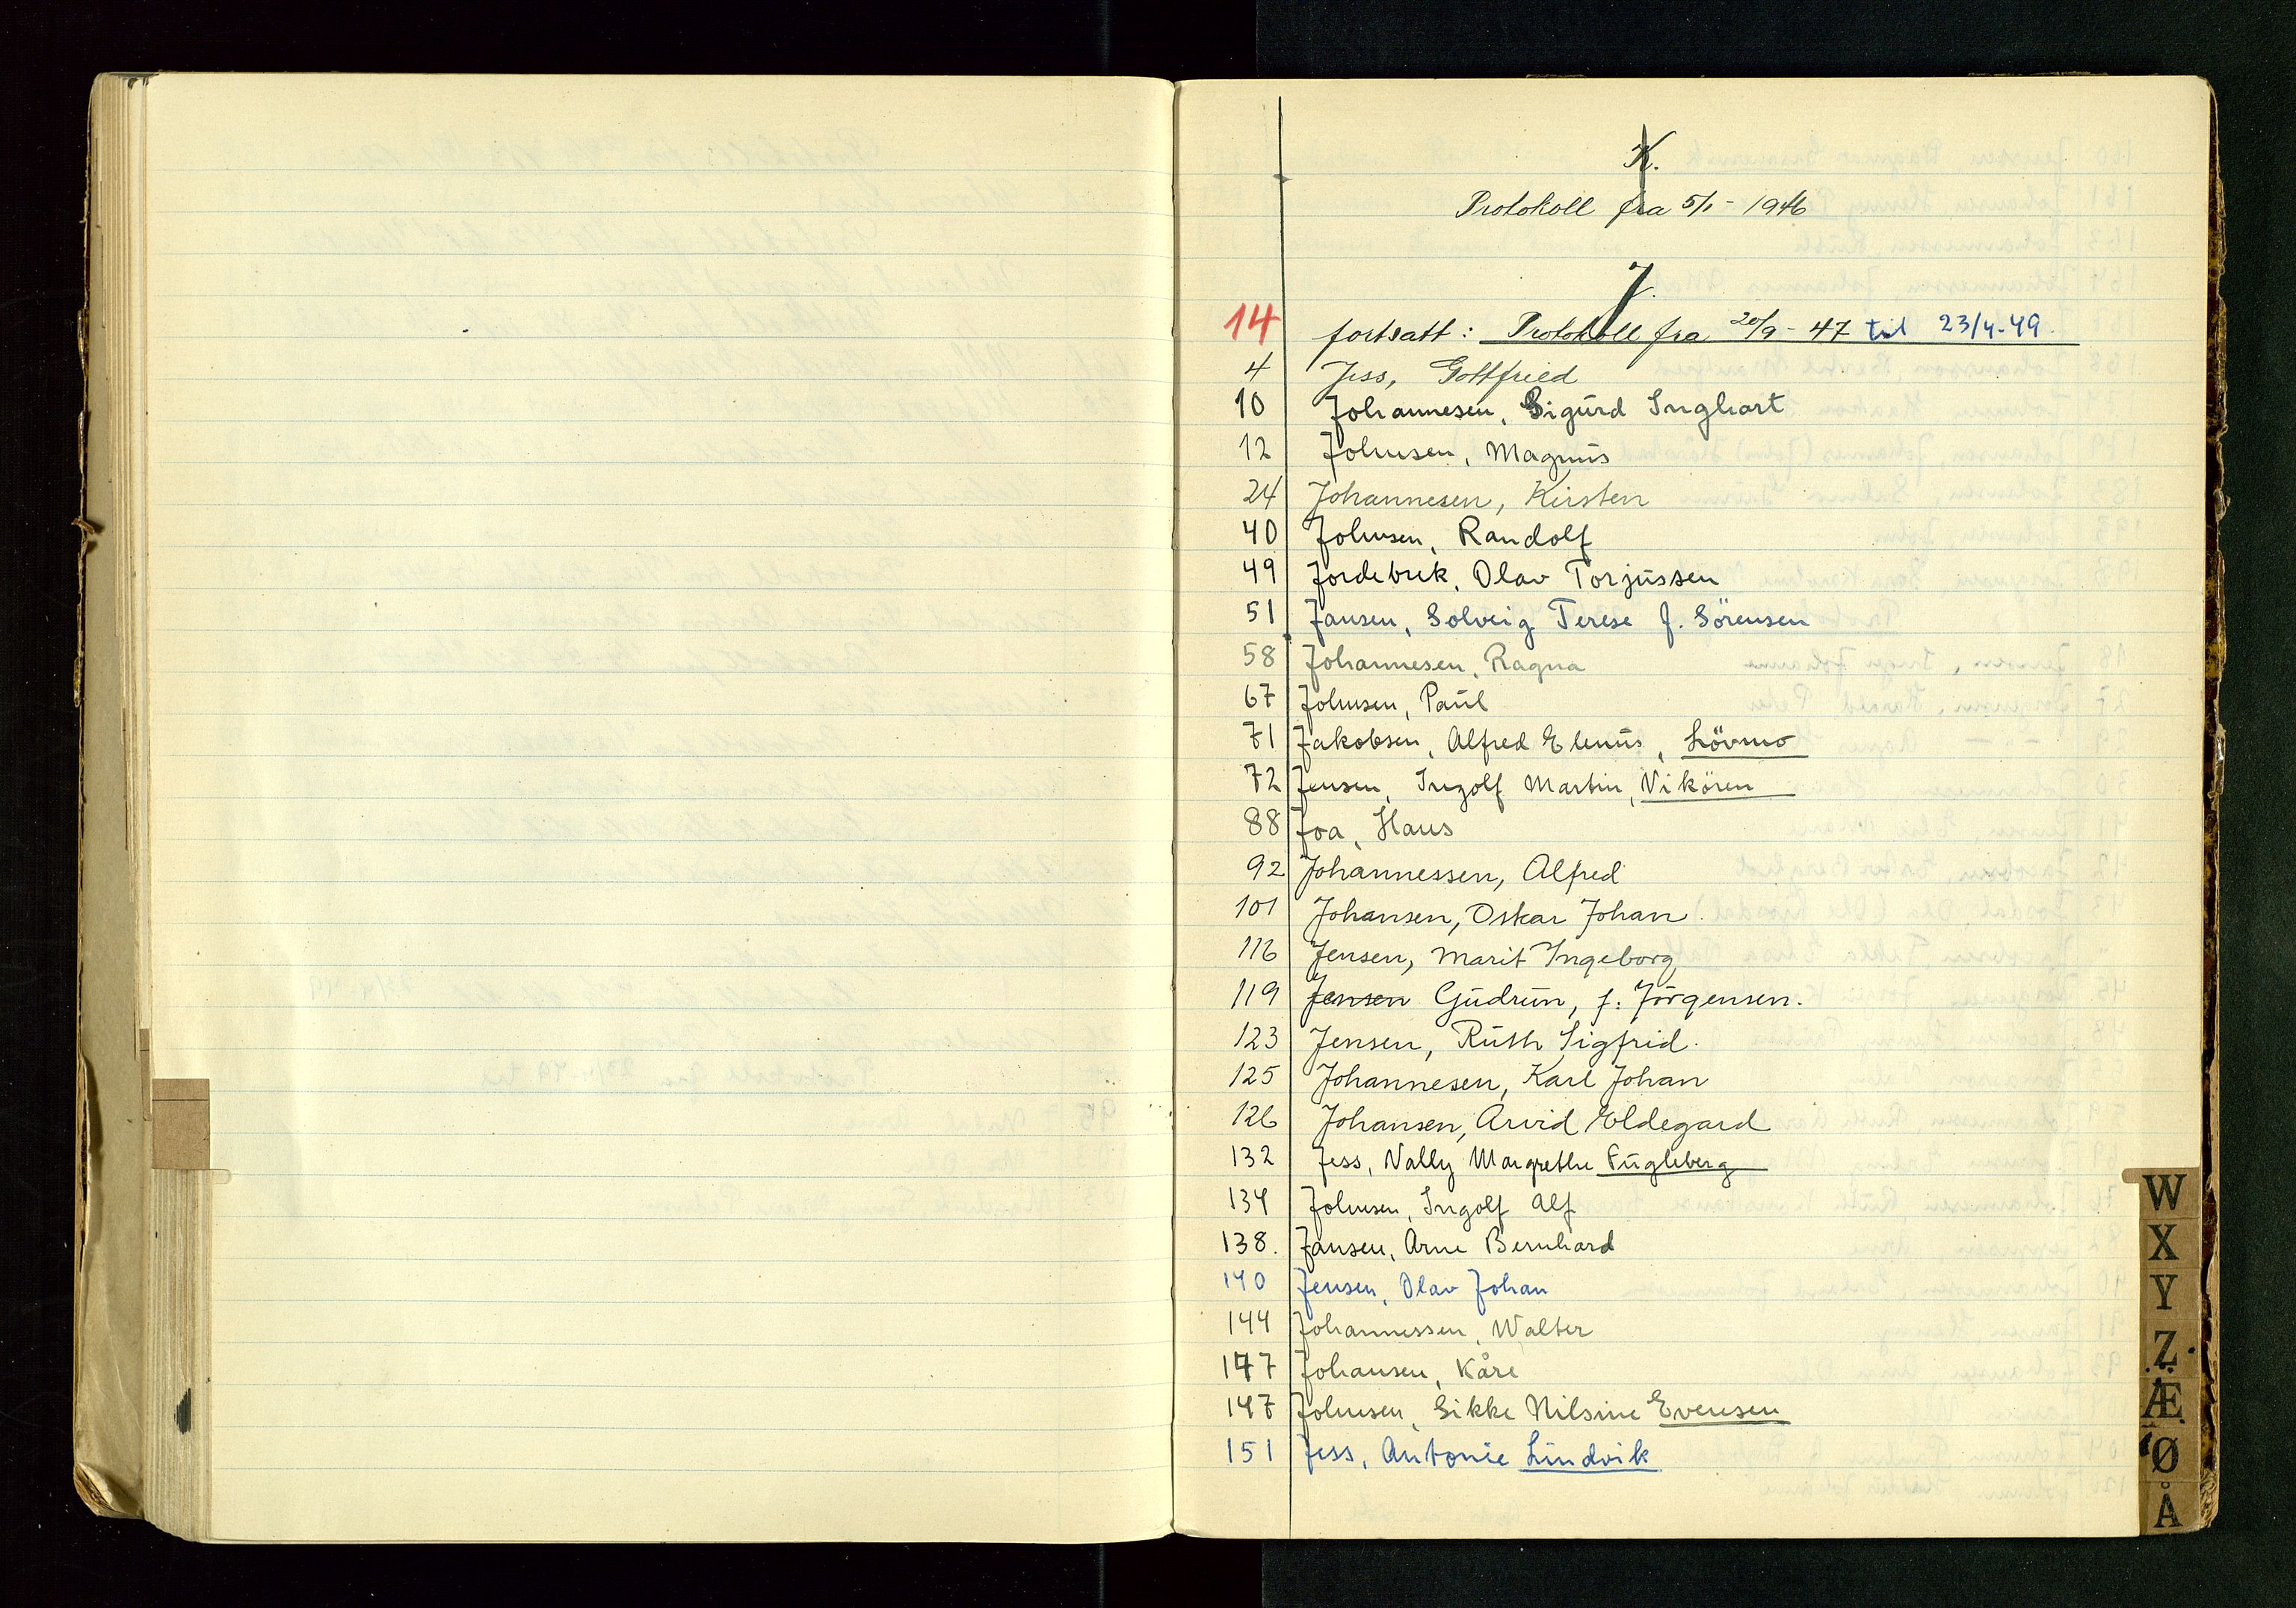 K.
Protokoll fra 5/1 - 1946
J.
14 fortsatt: Protokoll fra 20/9 - 47 til 23/4-49.
4 Jess, Gottfried
10 Johannesen, Sigurd Inghart
12 Johnsen, Magnus
24 Johannesen, Kirsten
40 Johnsen, Randolf
49 Jordebrek, Olav Torjussen
51 Jansen, Solveig Terese f. Sörensen
58 Johannesen, Ragna
67 Johnsen, Paul
71 Jakobsen, Alfred Elenus, Lövmo
72 Jensen, Ingolf Martin, Vikören
88 Joa, Hans
92 Johannessen, Alfred
101 Johansen, Oskar Johan.
116 Jensen, Marit Ingeborg
119 Jensen Gudrun, f. Jörgensen.
123 Jensen, Ruth Sigfrid.
125 Johannesen, Karl Johan
126 Johansen, Arvid Eldegard
132 Jess, Vally Margrethe Fugleberg
134 Johnsen, Ingolf Alf
138. Jansen, Arne Bernhard
140 Jensen, Olav Johan
144 Johannessen, Walter
147 Johansen, Kåre
147 Johnsen, Sikke Nilsine Evensen
151 Jess, Antonie Lindvik
W
X
Y
Z
Æ
Ø
Å